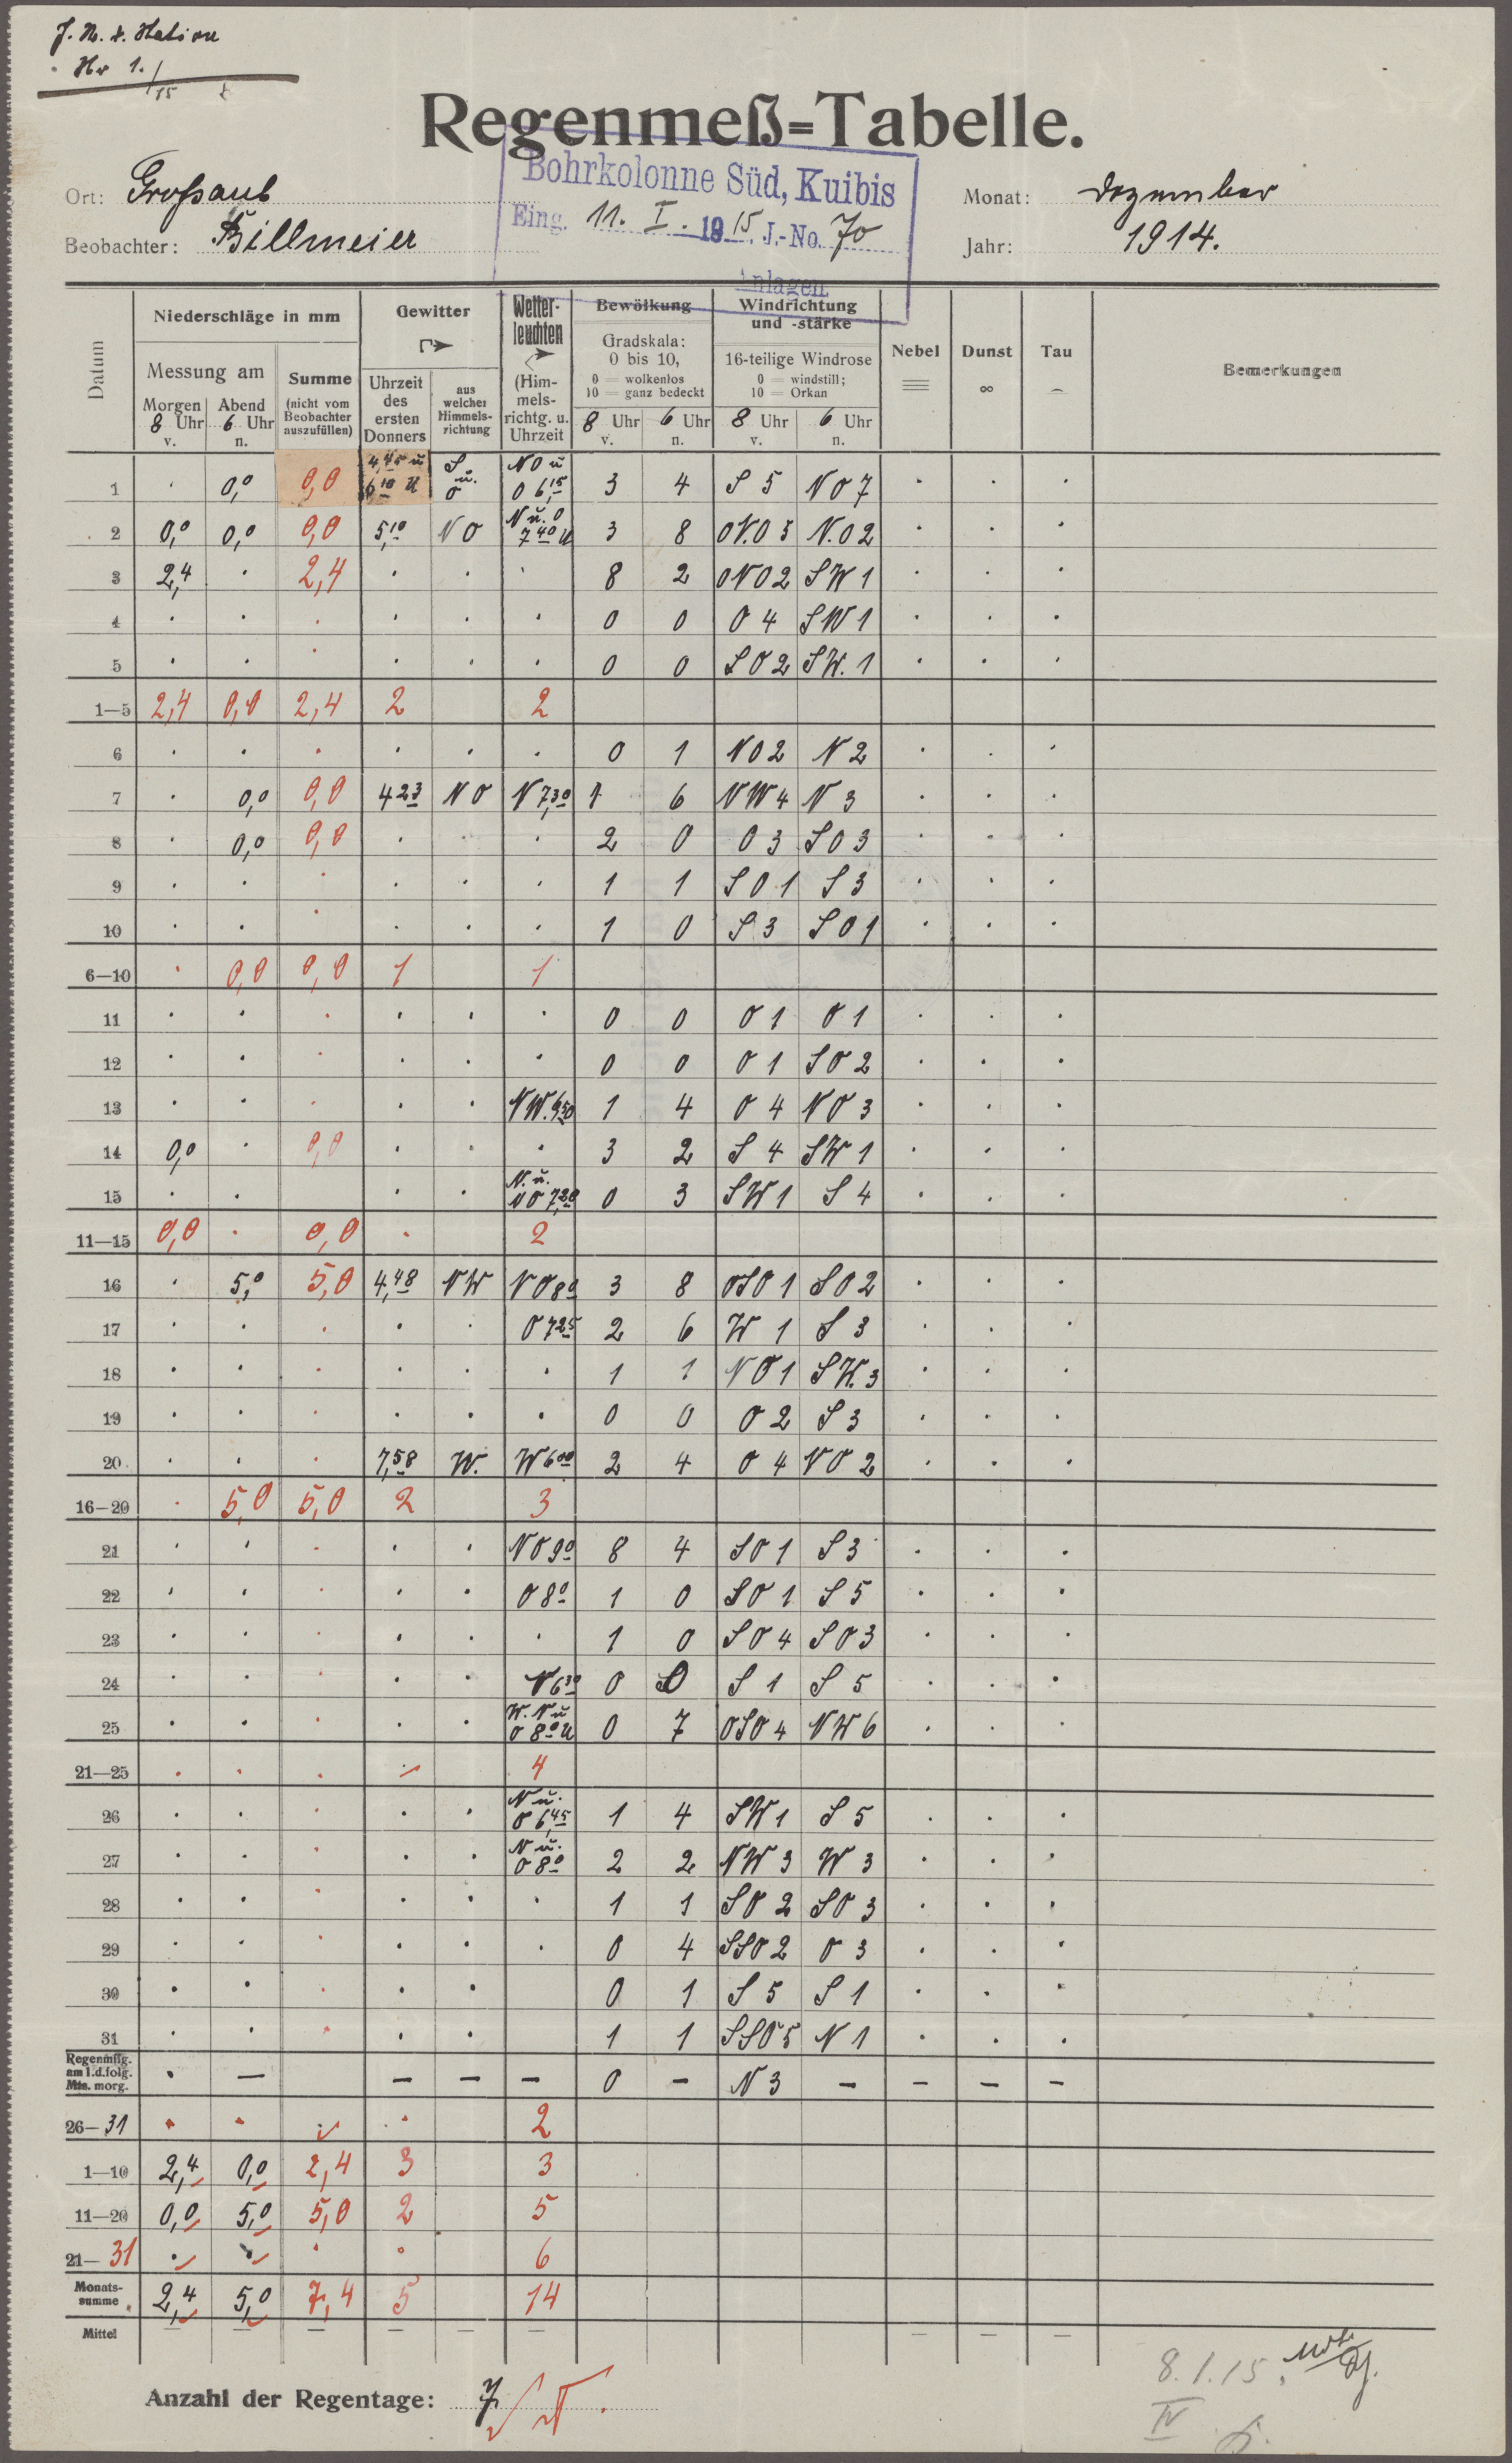 J. N. d. Station
Nr 1./15
Regenmeß=Tabelle.
Bohrkolonne Süd, Kuibis
Eing. 11. I. 1915 J.-No. 70
Anlagen
Ort: Großaub
Monat: Dezember
Beobachter: Billmeier
Jahr: 1914.
Datum | Niederschläge in mm | Gewitter | Wetterleuchten | Bewölkung | Windrichtung und -stärke | Nebel | Dunst | Tau | Bemerkungen
Messung am Morgen 8 Uhr v. | Abend 6 Uhr n. | Summe (nicht vom Beobachter auszufüllen) | Uhrzeit des ersten Donners | aus welcher Himmelsrichtung | (Himmelsrichtg. u. Uhrzeit | Gradskala: 0 bis 10, 0 = wolkenlos 10 = ganz bedeckt | 16-teilige Windrose 0 = windstill; 10 = Orkan
8 Uhr v. | 6 Uhr n. | 8 Uhr v. | 6 Uhr n.
1 | · | 0,0 | 0,0 | 4,45 u 6 10 U | S u. O | NO u O 6,15 | 3 | 4 | S 5 | NO 7 | · | · | ·
2 | 0,0 | 0,0 | 0,0 | 5,10 | NO | N u. O 7 40 U | 3 | 8 | ONO 3 | N.O 2 | · | · | ·
3 | 2,4 | · | 2,4 | · | · | · | 8 | 2 | ONO 2 | SW 1 | · | · | ·
4 | · | · | · | · | · | · | 0 | 0 | O 4 | SW 1 | · | · | ·
5 | · | · | · | · | · | · | 0 | 0 | SO 2 | SW. 1 | · | · | ·
1—5 | 2,4 | 0,0 | 2,4 | 2 | | 2
6 | · | · | · | · | · | · | 0 | 1 | NO 2 | N 2 | · | · | ·
7 | · | 0,0 | 0,0 | 4 23 | NO | N 7,30 | 1 | 6 | NW 4 | N 3 | · | · | ·
8 | · | 0,0 | 0,0 | · | · | · | 2 | 0 | O 3 | SO 3 | · | · | ·
9 | · | · | · | · | · | · | 1 | 1 | SO 1 | S 3 | · | · | ·
10 | · | · | · | · | · | · | 1 | 0 | S 3 | SO 1 | · | · | ·
6—10 | · | 0,0 | 0,0 | 1 | | 1
11 | · | · | · | · | · | · | 0 | 0 | O 1 | O 1 | · | · | ·
12 | · | · | · | · | · | · | 0 | 0 | O 1 | SO 2 | · | · | ·
13 | · | · | · | · | · | NW. 6 50 | 1 | 4 | O 4 | NO 3 | · | · | ·
14 | 0,0 | · | 0,0 | · | · | · | 3 | 2 | S 4 | SW 1 | · | · | ·
15 | · | · | | · | · | N. u. NO 7,20 | 0 | 3 | SW 1 | S 4 | · | · | ·
11—15 | 0,0 | · | 0,0 | · | | 2
16 | · | 5,0 | 5,0 | 4,48 | NW | NO 8 0 | 3 | 8 | OSO 1 | SO 2 | · | · | ·
17 | · | · | · | · | · | O 7 25 | 2 | 6 | W 1 | S 3 | · | · | ·
18 | · | · | · | · | · | · | 1 | 1 | NO 1 | SW. 3 | · | · | ·
19 | · | · | · | · | · | · | 0 | 0 | O 2 | S 3 | · | · | ·
20 | · | · | · | 7,58 | W. | W 6 00 | 2 | 4 | O 4 | NO 2 | · | · | ·
16—20 | · | 5,0 | 5,0 | 2 | | 3
21 | · | · | · | · | · | NO 9 0 | 8 | 4 | SO 1 | S 3 | · | · | ·
22 | · | · | · | · | · | O 8 0 | 1 | 0 | SO 1 | S 5 | · | · | ·
23 | · | · | · | · | · | · | 1 | 0 | SO 4 | SO 3 | · | · | ·
24 | · | · | · | · | · | N 6 30 | 0 | 0 | S 1 | S 5 | · | · | ·
25 | · | · | · | · | · | W. N u O 8 0 U | 0 | 7 | OSO 4 | NW 6 | · | · | ·
21—25 | · | · | · | · | | 4
26 | · | · | · | · | · | N u. O 6,45 | 1 | 4 | SW 1 | S 5 | · | · | ·
27 | · | · | · | · | · | N u. O 8 0 | 2 | 2 | NW 3 | W 3 | · | · | ·
28 | · | · | · | · | · | · | 1 | 1 | SO 2 | SO 3 | · | · | ·
29 | · | · | · | · | · | · | 0 | 4 | SSO 2 | O 3 | · | · | ·
30 | · | · | · | · | · | | 0 | 1 | S 5 | S 1 | · | · | ·
31 | · | · | · | · | · | | 1 | 1 | SSO 5 | N 1 | · | · | ·
Regenmßg. am 1.d.folg. Mts. morg. | · | — | | — | — | — | 0 | — | N 3 | — | — | — | —
26—31 | · | · | · | · | | 2
1—10 | 2,4 | 0,0 | 2,4 | 3 | | 3
11—20 | 0,0 | 5,0 | 5,0 | 2 | | 5
21—31 | · | · | · | · | | 6
Monatssumme | 2,4 | 5,0 | 7,4 | 5 | | 14
Mittel | — | — | — | — | — | — | | | | | — | — | —
Anzahl der Regentage: 7
8.1.15.
IV